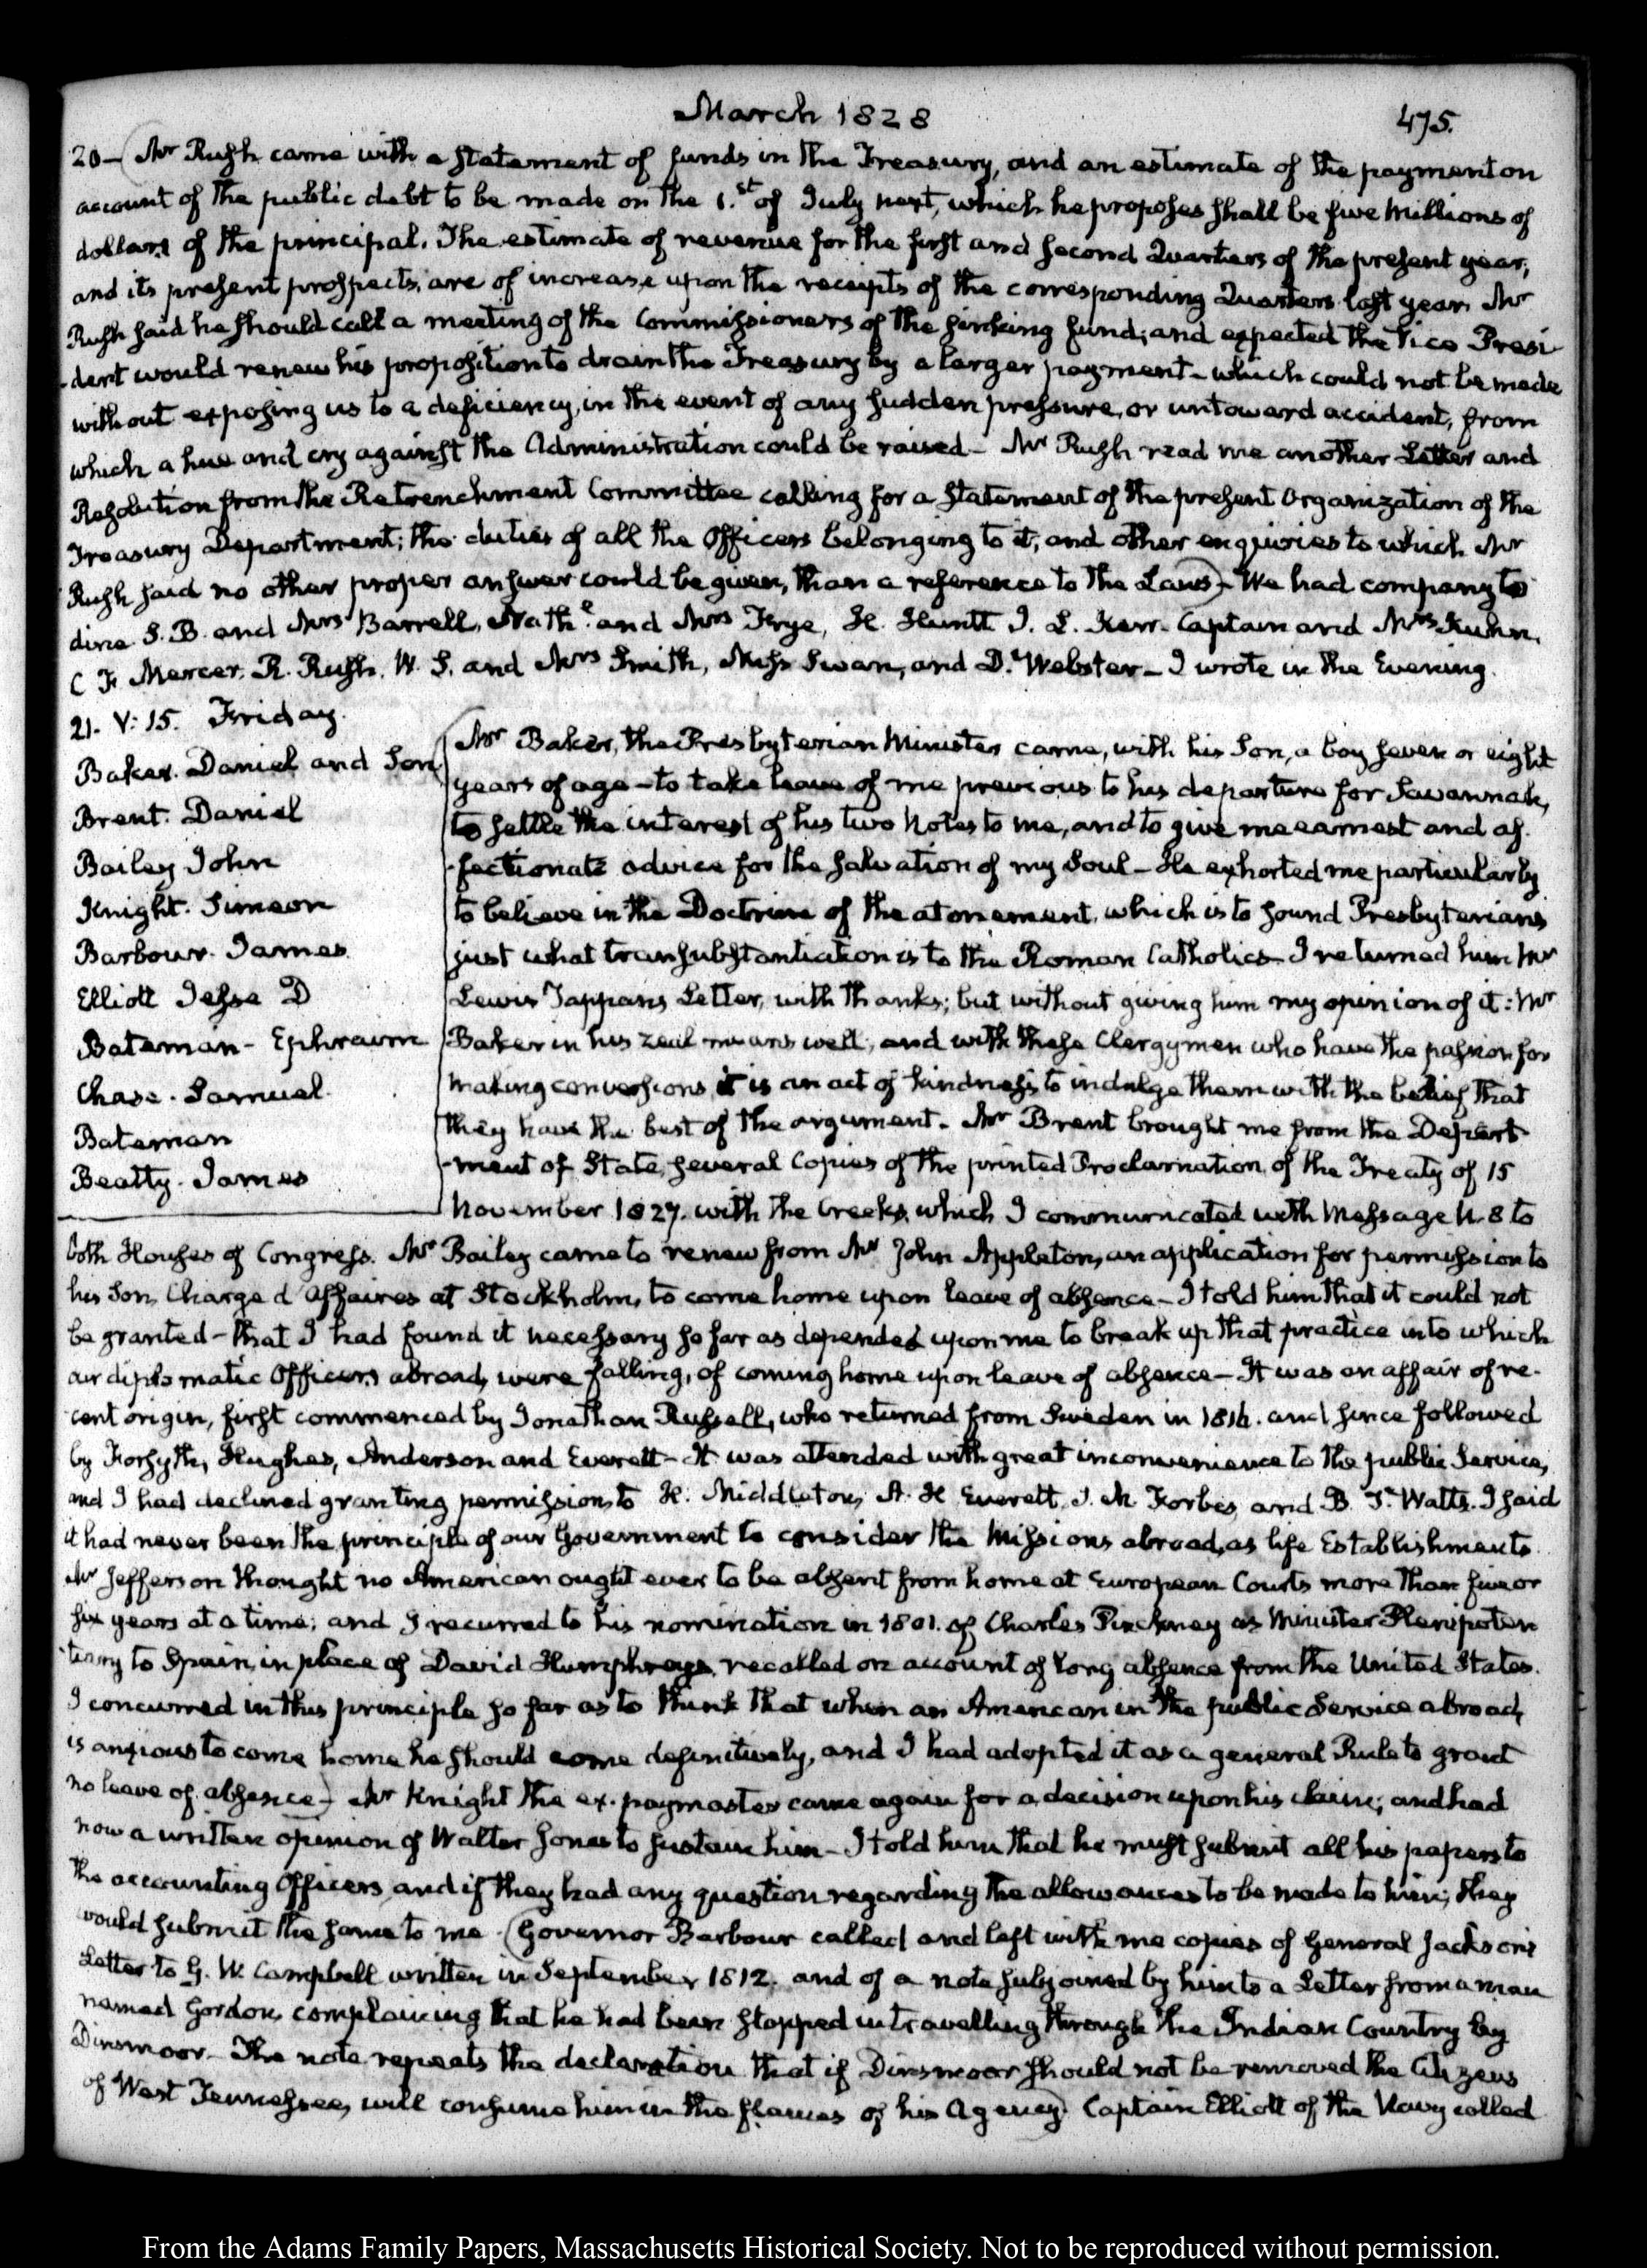 March 1828
475.
20— Mr Rush came with a statement of funds in the Treasury, and an estimate of the payment on
account of the public debt to be made on the 1.st of July next, which he proposes shall be five Millions of
dollars of the principal. The estimate of revenue for the first and second Quarters of the present year,
and its present prospects, are of increase upon the receipts of the corresponding Quarters last year. Mr
Rush said he should call a meeting of the Commissioners of the sinking fund; and expected the Vice Presi-
-dent would renew his proposition to drain the Treasury by a larger payment— which could not be made
without exposing us to a deficiency, in the event of any sudden pressure, or untoward accident, from
which a hue and cry against the Administration could be raised— Mr Rush read me another Letter and
Resolution from the Retrenchment Committee calling for a statement of the present Organization of the
Treasury Department; the duties of all the Officers belonging to it, and other enquiries to which Mr
Rush said no other proper answer could be given, than a reference to the Laws— We had company to
dine S. B. and Mrs Barrell, Nath.l and Mrs Frye, H. Huntt J. L. Kerr. Captain and Mrs Kuhn,
C F Mercer. R. Rush. W. S. and Mrs Smith, Miss Swan, and D. Webster— I wrote in the Evening.
21. V: 15. Friday.
Baker. Daniel and Son
Brent. Daniel
Bailey John
Knight. Simeon
Barbour. James
Elliott Jesse D
Bateman- Ephraim
Chase. Samuel.
Bateman
Beatty. James
Mr Baker, the Presbyterian Minister came, with his Son, a boy seven or eight
years of age— to take leave of me previous to his departure for Savannah,
to settle the interest of his two Notes to me, and to give me earnest and af-
-fectionate advice for the salvation of my Soul— He exhorted me particularly
to believe in the Doctrine of the atonement, which is to sound Presbyterians
just what transubstantiation is to the Roman Catholics— I returned him Mr
Lewis Tappan's Letter, with thanks; but without giving him my opinion of it: Mr
Baker in his zeal means well; and with these Clergymen who have the passion for
making conversions it is an act of kindness to indulge them with the belief that
they have the best of the argument. Mr Brent brought me from the Depart-
-ment of State, several Copies of the printed Proclamation of the Treaty of 15
November 1827. with the Creeks, which I communicated with Message N. 8 to
both Houses of Congress. Mr Bailey came to renew from Mr John Appleton, an application for permission to
his Son, Charge d'Affaires at Stockholm, to come home upon leave of absence— I told him that it could not
be granted— that I had found it necessary so far as depended upon me to break up that practice into which
our diplomatic Officers abroad, were falling, of coming home upon leave of absence— It was an affair of re-
cent origin, first commenced by Jonathan Russell, who returned from Sweden in 1816. and since followed
by Forsyth, Hughes, Anderson and Everett— It was attended with great inconvenience to the public Service,
and I had declined granting permission to H. Middleton, A. H Everett, J. M. Forbes, and B. T. Watts. I said
it had never been the principle of our Government to consider the Missions abroad, as life Establishments.
Mr Jefferson thought no American ought ever to be absent from home at European Courts more than five or
six years at a time; and I recurred to his nomination in 1801. of Charles Pinckney as Minister Plenipoten
-tiary to Spain, in place of David Humphreys, recalled on account of long absence from the United States.
I concurred in this principle so far as to think that when an American in the public Service abroad,
is anxious to come home he should come definitively, and I had adopted it as a general Rule to grant
no leave of absence— Mr Knight the ex-paymaster came again for a decision upon his claim; and had
now a written opinion of Walter Jones to sustain him— I told him that he must submit all his papers to
the accounting Officers, and if they had any question regarding the allowances to be made to him, they
would submit the same to me. Governor Barbour called and left with me copies of General Jackson's
Letter to G. W. Campbell written in September 1812. and of a note subjoined by him to a Letter from a man
named Gordon, complaining that he had been stopped in travelling through the Indian Country by
Dinsmoor— The note repeats the declaration that if Dinsmoor should not be removed the Citizens
of West Tennessee, will consume him in the flames of his Agency. Captain Elliott of the Navy called
From the Adams Family Papers, Massachusetts Historical Society. Not to be reproduced without permission.